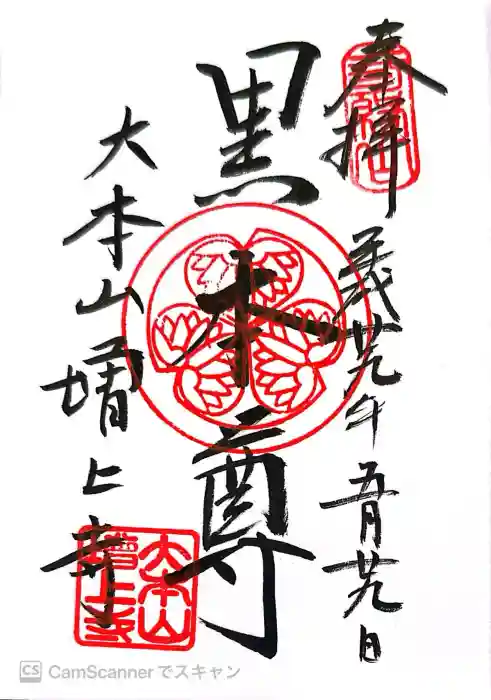 奉拝
平成廿九年五月廿九日
黒本尊
大本山増上寺
大本山
増上寺
CS CamScannerでスキャン